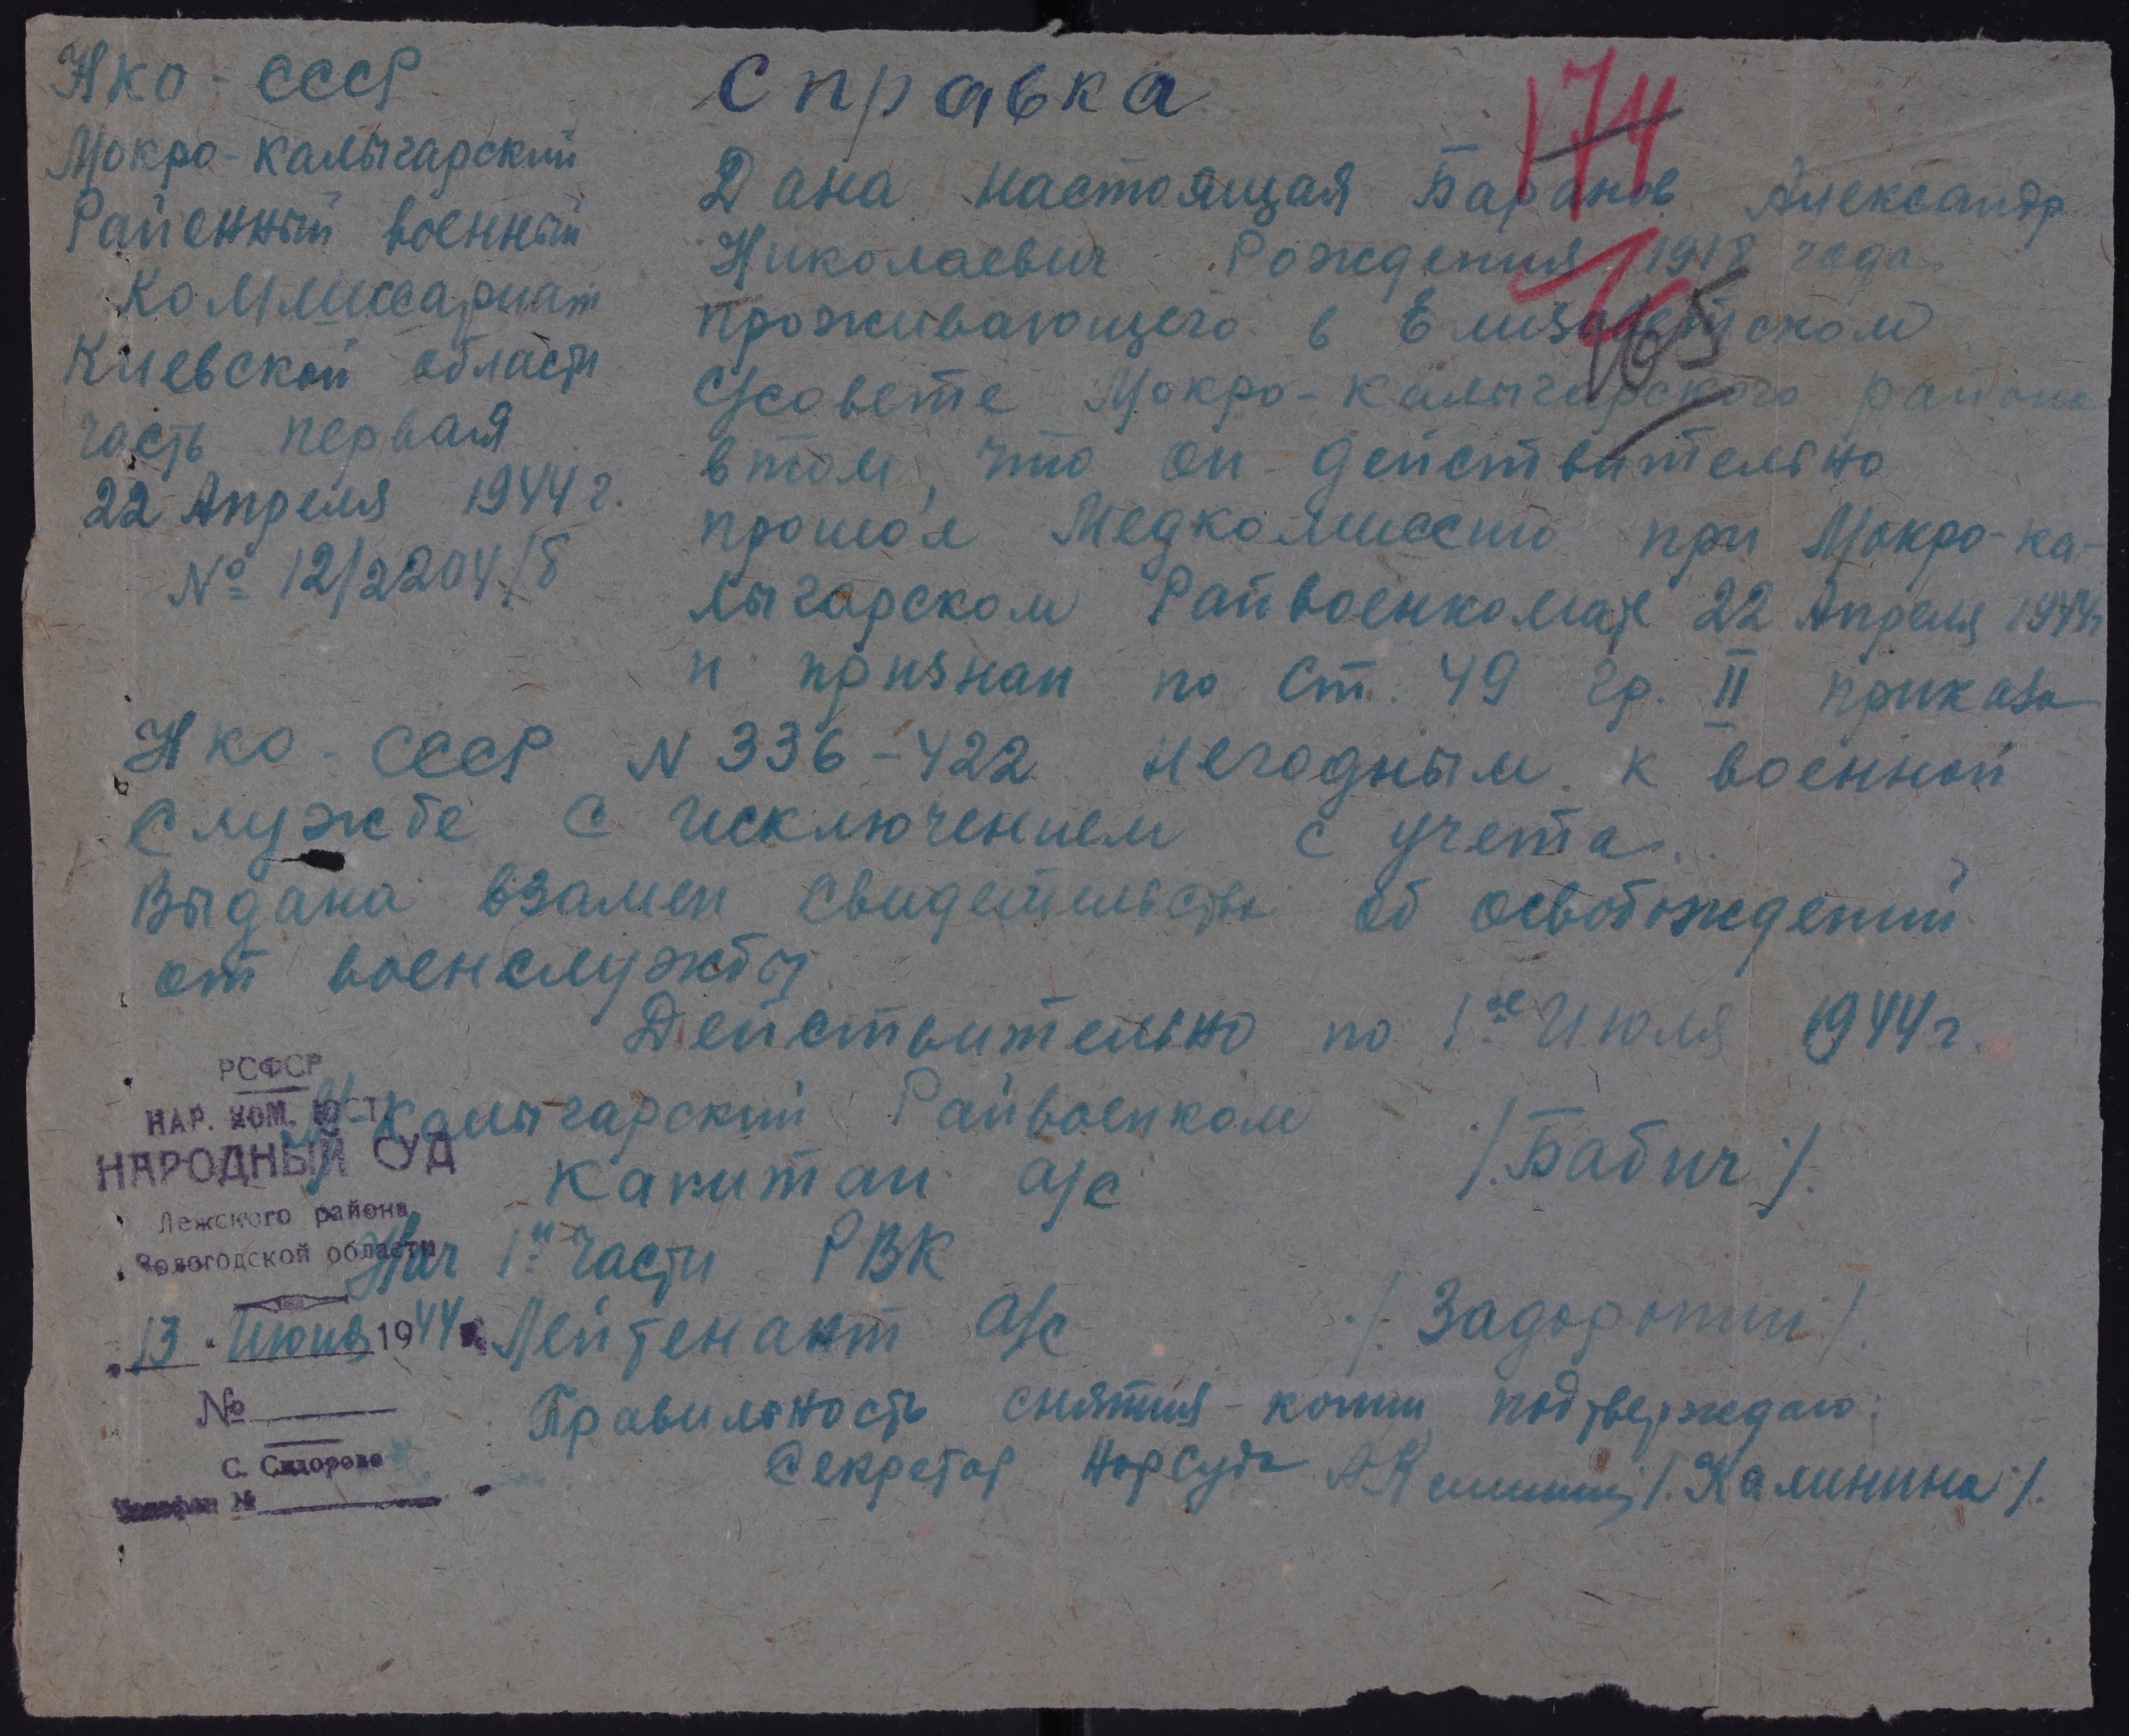 НКО - СССР
Мокро-калыгарский
Районный военный
Коммиссариат
Киевской области
часть первая
22 Апреля 1944 г.
№ 12/2204/б
Справка
174
165
Дана настоящая Баранов Александр
Николаевич Рождения 1918 года
проживающего в Елизаветском
с/совете Мокро-калыгарского района
в том, что он действительно
прошол Медкомиссию при Мокро-ка-
лыгарском Райвоенкомате 22 Апреля 1944г
и признан по Ст. 49 гр. II приказа
НКО - СССР N 336-422 негодным к военной
службе с исключением с учета.
Выдана взамен свидетельства об освобождений
от военслужбы.
Действительно по 1ое Июля 1944г.
М/Калыгарский Райвоенком
Капитан а/с /.Бабич./.
Нач 1й части РВК
Лейтенант а/с ./.Задорожний./.
Правильность снятия копии подтверждаю:
Секретар Нарсуда /.Калинина./.
РСФСР
НАР. КОМ. ЮСТ.
НАРОДНЫЙ СУД
Лежского района
Вологодской области
13 Июня 1944
№
С. Сидорово
Телефон №